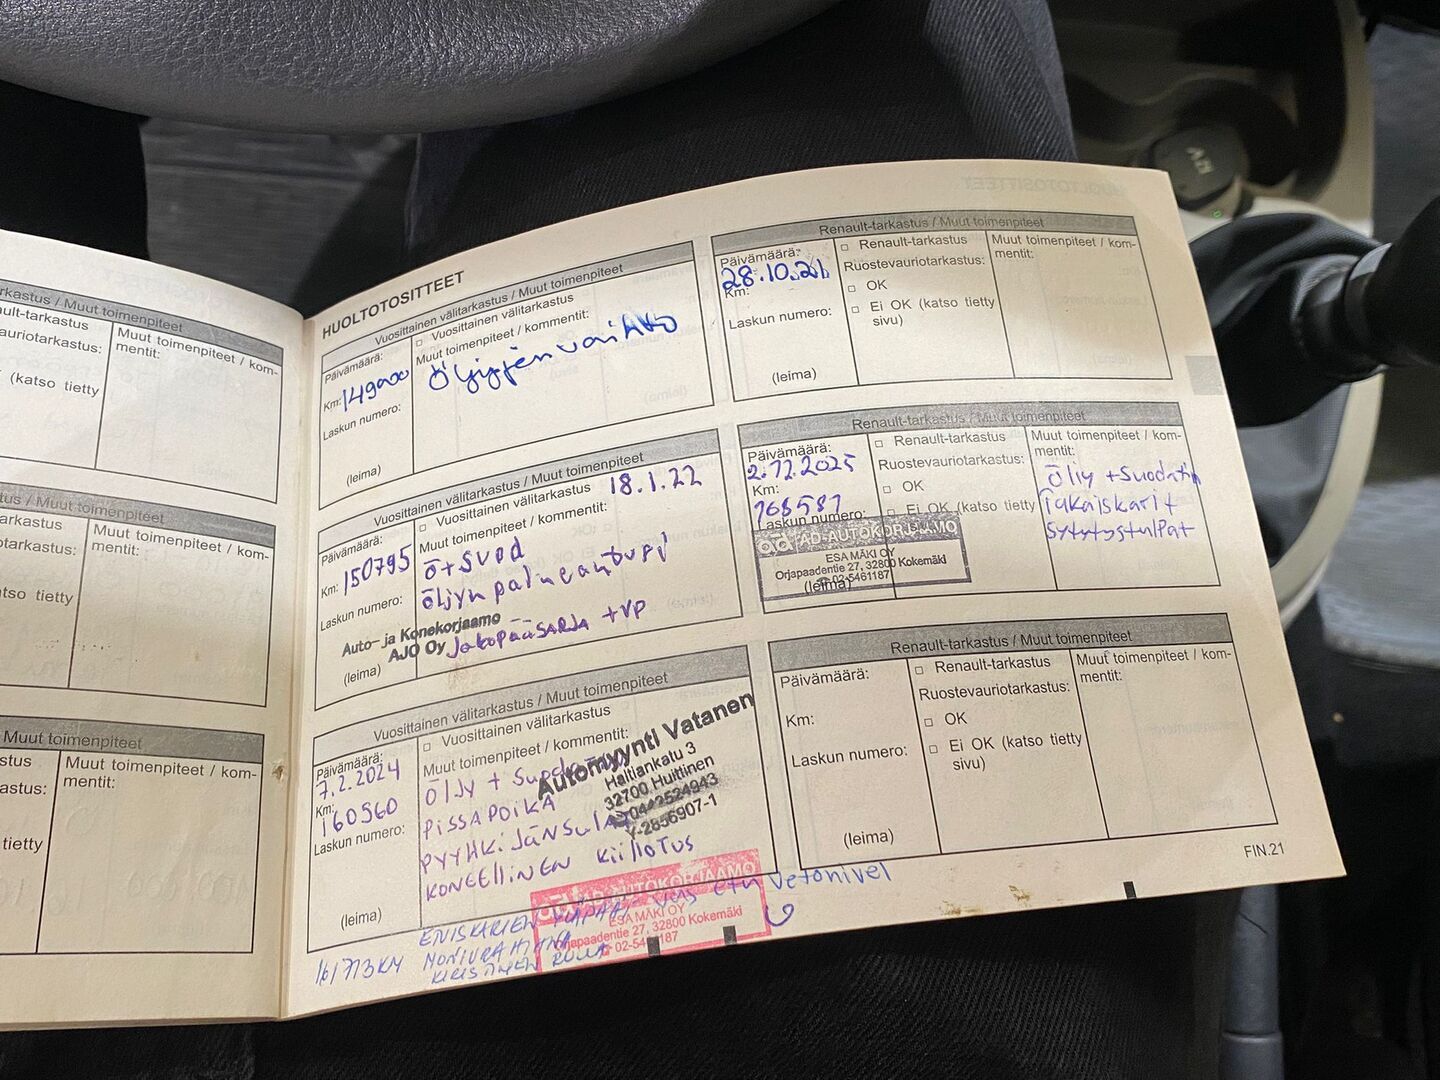 rkastus / Muut toimenpiteet
lt-tarkastus
uriotarkastus:
(katso tietty
Muut toimenpiteet / kom-
mentit:
stus / Muut toimenpiteet
tarkastus
riotarkastus:
atso tietty
Muut toimenpiteet / kom-
mentit:
Muut toimenpiteet
stus
astus:
tietty
Muut toimenpiteet / kom-
mentit:
HUOLTOTOSITTEET
Vuosittainen välitarkastus / Muut toimenpiteet
Päivämäärä:
Km: 149000
Laskun numero:
(leima)
□ Vuosittainen välitarkastus
Muut toimenpiteet / kommentit:
Öljyjenvaihto
Vuosittainen välitarkastus / Muut toimenpiteet
Päivämäärä:
Km: 150795
Laskun numero:
(leima)
□ Vuosittainen välitarkastus 18.1.22
Muut toimenpiteet / kommentit:
ö+suod
öljyn paineanturi
Jakopääsarja + VP
Auto- ja Konekorjaamo
AJO Oy
Vuosittainen välitarkastus / Muut toimenpiteet
Päivämäärä:
7.2.2024
Km:
160560
Laskun numero:
(leima)
□ Vuosittainen välitarkastus
Muut toimenpiteet / kommentit:
Öljy + Suodatin
PISSAPOIKA
PYYHKIJÄNSULAT
KONEELLINEN KIILLOTUS
Automyynti Vatanen
Haltiankatu 3
32700 Huittinen
0442524943
Y-2856907-1
AD-AUTOKORJAAMO
ESA MÄKI OY
Orjapaadentie 27, 32800 Kokemäki
02-5461187
etu vetonivel
MONIURAHIHNA
Renault-tarkastus / Muut toimenpiteet
Päivämäärä:
28.10.21
Km:
Laskun numero:
(leima)
□ Renault-tarkastus
Ruostevauriotarkastus:
□ OK
□ Ei OK (katso tietty
sivu)
Muut toimenpiteet / kom-
mentit:
Renault-tarkastus / Muut toimenpiteet
Päivämäärä:
2.12.2025
Km:
165581
Laskun numero:
(leima)
□ Renault-tarkastus
Ruostevauriotarkastus:
□ OK
□ Ei OK (katso tietty
Muut toimenpiteet / kom-
mentit:
Öljy + suodatin
Takaiskarit
sytytystulpat
AD-AUTOKORJAAMO
ESA MÄKI OY
Orjapaadentie 27, 32800 Kokemäki
02-5461187
Renault-tarkastus / Muut toimenpiteet
Päivämäärä:
Km:
Laskun numero:
(leima)
□ Renault-tarkastus
Ruostevauriotarkastus:
□ OK
□ Ei OK (katso tietty
sivu)
Muut toimenpiteet / kom-
mentit:
FIN.21